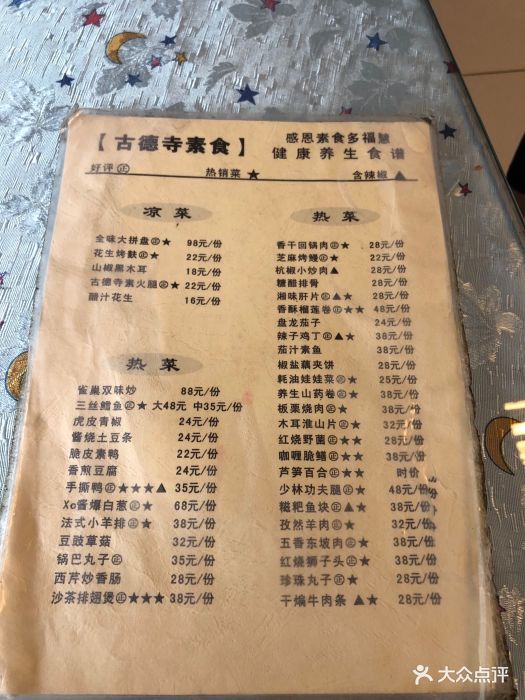 【古德寺素食】
感恩素食多福慧
健康养生食谱
好评㊣ 热销菜★ 含辣椒▲
凉菜
全味大拼盘㊣★ 98元/份
花生烤麸㊣★ 22元/份
山椒黑木耳 18元/份
古德寺素火腿㊣★ 22元/份
醋汁花生 16元/份
热菜
雀巢双味炒 88元/份
三丝鳕鱼㊣★ 大48元 中35元/份
虎皮青椒 24元/份
酱烧土豆条 24元/份
脆皮素鸭 22元/份
香煎豆腐 24元/份
手撕鸭㊣★★★▲ 35元/份
Xo酱爆白葱㊣★ 68元/份
法式小羊排㊣★ 38元/份
豆豉草菇 32元/份
锅巴丸子㊣ 35元/份
西芹炒香肠 28元/份
沙茶排翅煲㊣★★★ 38元/份
热菜
香干回锅肉㊣★ 28元/份
芝麻烤鳗㊣★ 28元/份
杭椒小炒肉▲ 28元/份
糖醋排骨 28元/份
湘味肝片㊣▲★ 28元/份
香酥榴莲卷㊣★★ 48元/份
盘龙茄子 24元/份
辣子鸡丁㊣▲★ 38元/份
茄汁素鱼 38元/份
椒盐藕夹饼 28元/份
耗油娃娃菜㊣★ 25元/份
养生山药卷㊣★ 38元/份
板栗烧肉㊣★ 38元/份
木耳淮山片㊣★ 32元/份
红烧野菌㊣★★ 28元/份
咖喱脆鳝㊣★★ 38元/份
芦笋百合㊣★★ 时价
少林功夫腿㊣★ 48元/份
糍粑鱼块㊣▲★ 38元/份
孜然羊肉㊣★ 32元/份
五香东坡肉㊣★ 38元/份
红烧狮子头㊣★ 38元/份
珍珠丸子㊣★ 28元/份
干煸牛肉条▲★ 28元/份
大众点评